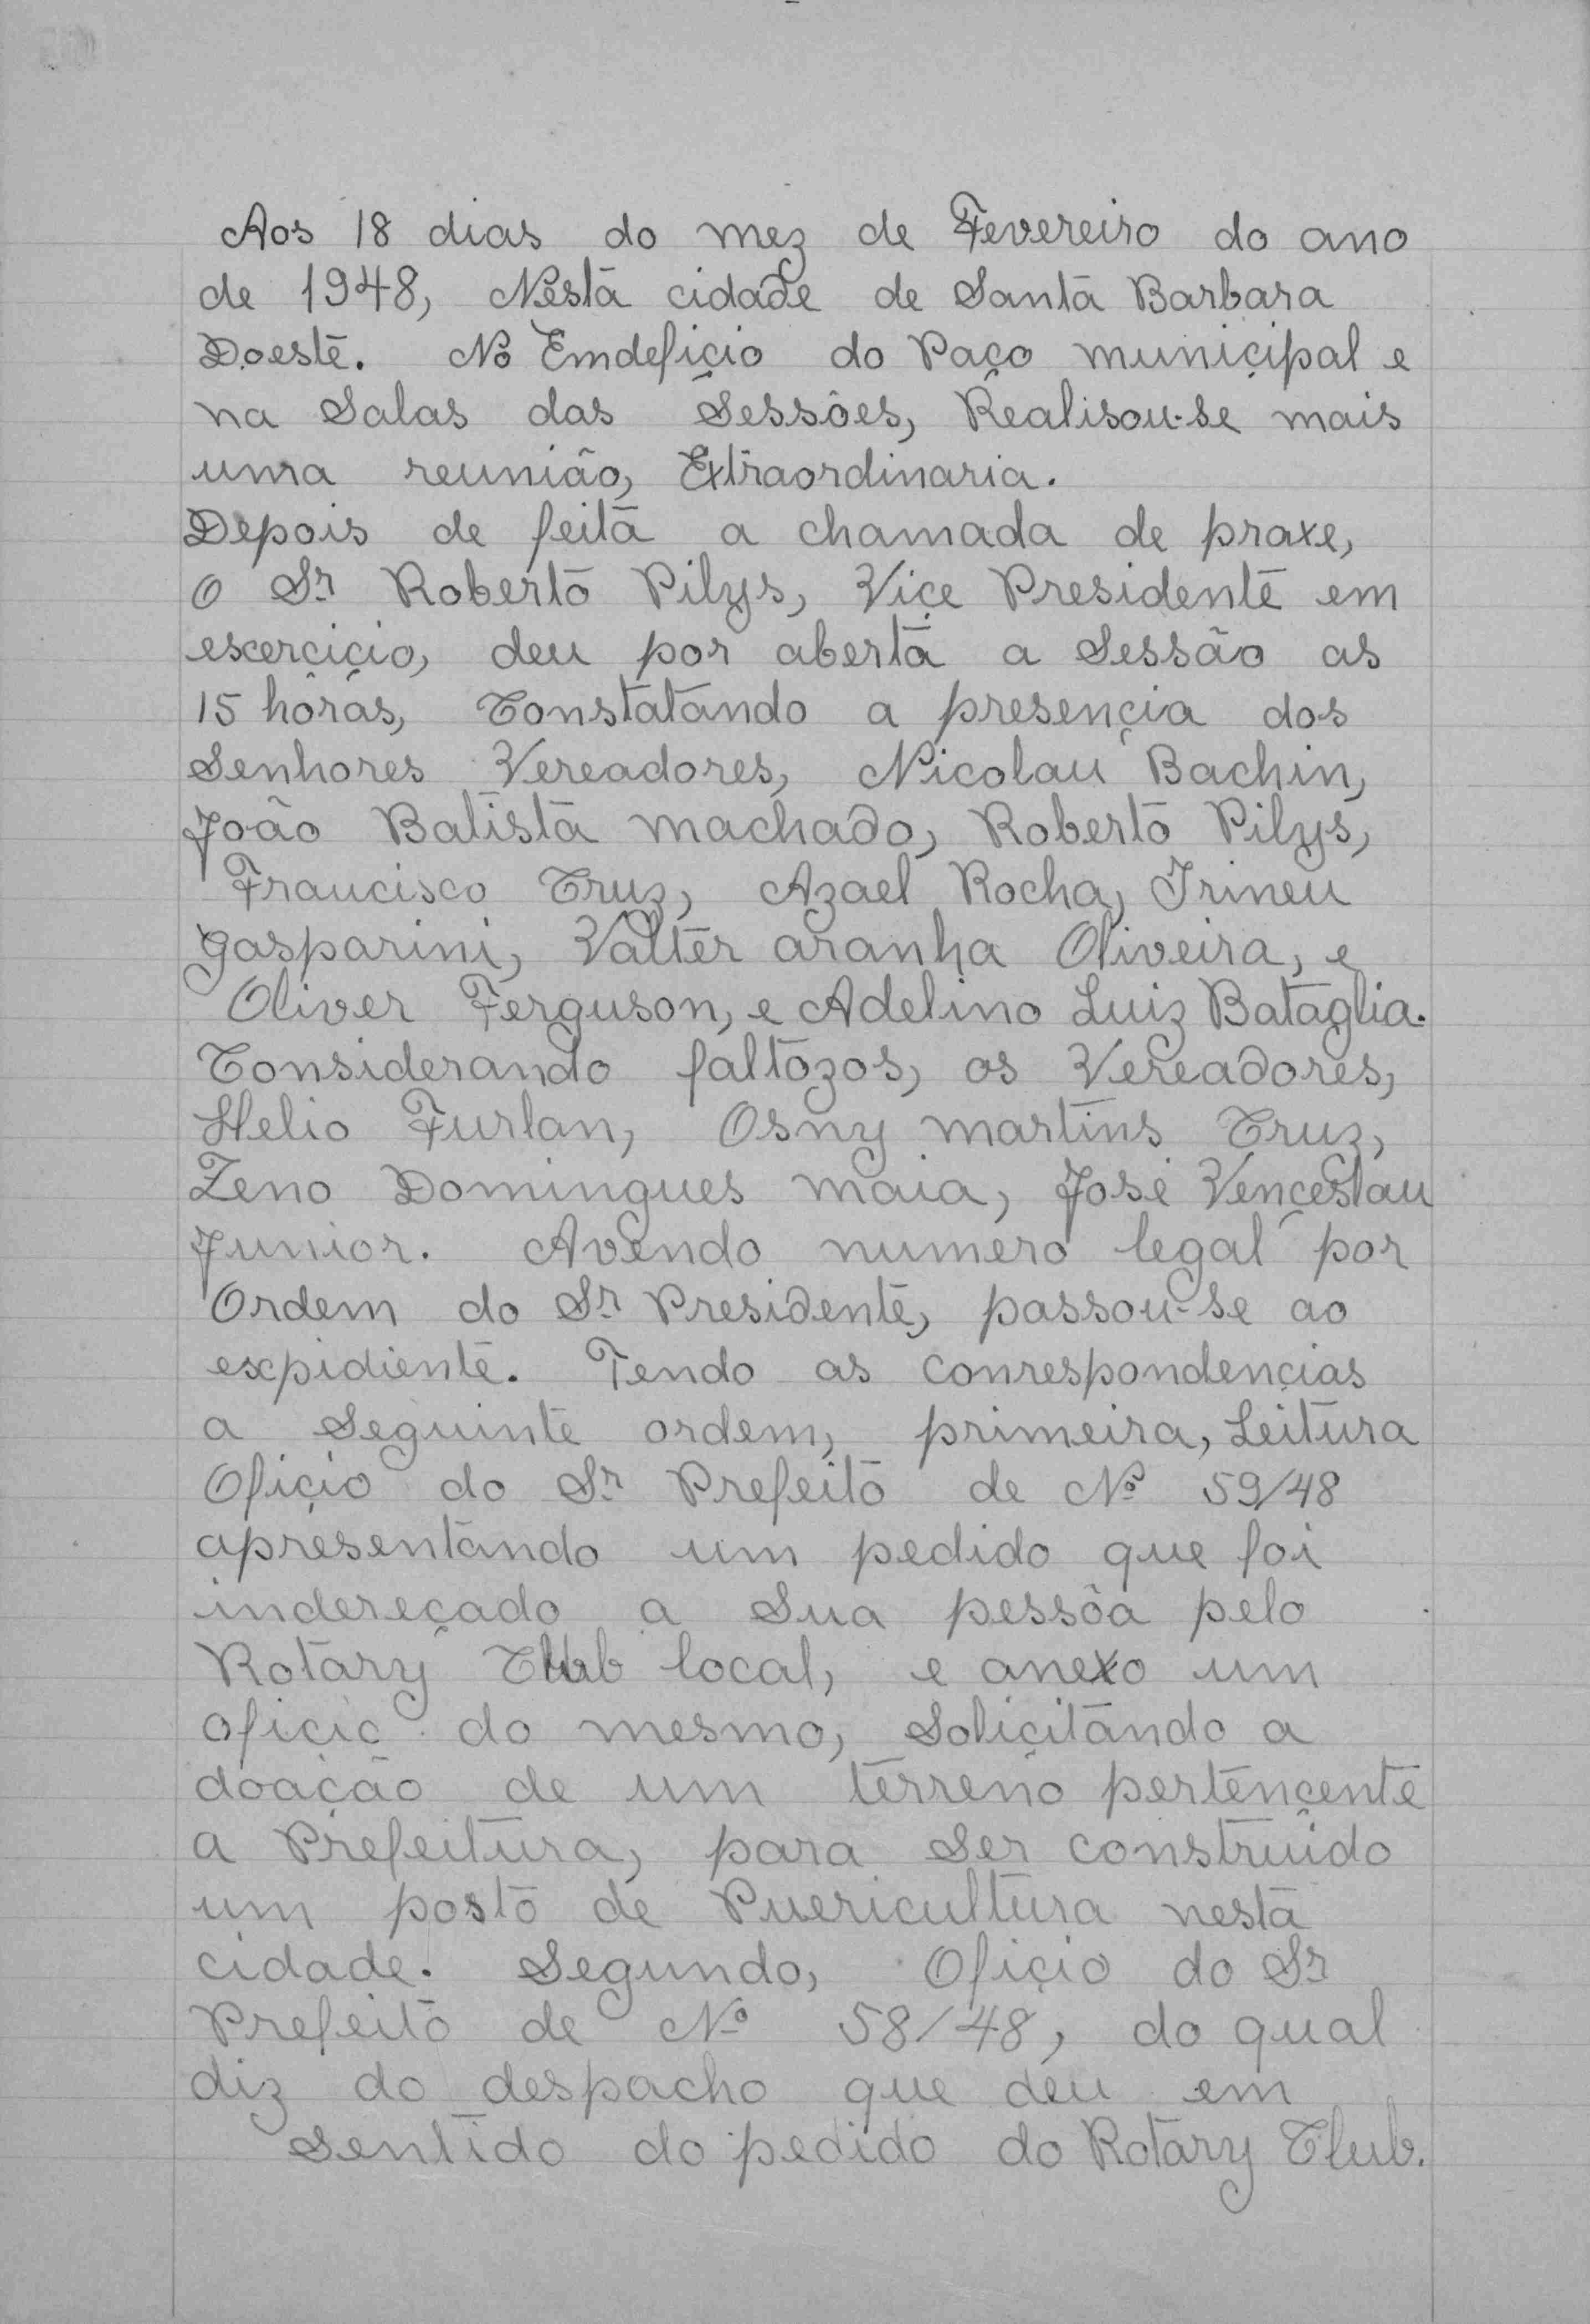 Aos 18 dias do mez de Fevereiro do ano
de 1948, Nesta cidade de Santa Barbara
Doeste. No Emdefiçio do Paço municipal e
na Salas das Sessões, Realisou-se mais
uma reunião, Extraordinaria.
Depois de feita a chamada de praxe,
O Sr Roberto Pilys, Viçe Presidente em
exerciçio, deu por aberta a Sessão as
15 hóras, Constatando a presençia dos
Senhores Vereadores, Nicolau Bachin,
João Batista machado, Roberto Pilys,
Francisco Cruz, Azael Rocha, Irineu
gasparini, Valter aranha Oliveira, e
Oliver Ferguson, e Adelino Luiz Bataglia.
Considerando faltozos, os Vereadores,
Helio Furlan, Osny martins Cruz,
Zeno Domingues maia, José Vençeslau
Junior. Avendo numero legal por
Ordem do Sr Presidente, passou-se ao
expidiente. Tendo as conrespondençias
a Seguinte ordem, primeira, Leitura
Ofiçio do Sr Prefeito de Nº 59/48
apresentando um pedido que foi
indereçado a Sua pessôa pelo
Rotary Club local, e anexo um
oficio do mesmo, Soliçitando a
doação de um terreno pertençente
a Prefeitura, para Ser construido
um posto de Puericultura nesta
cidade. Segundo, Ofiçio do Sr
Prefeito de Nº 58/48, do qual
diz do despacho que deu em
Sentido do pedido do Rotary Club.